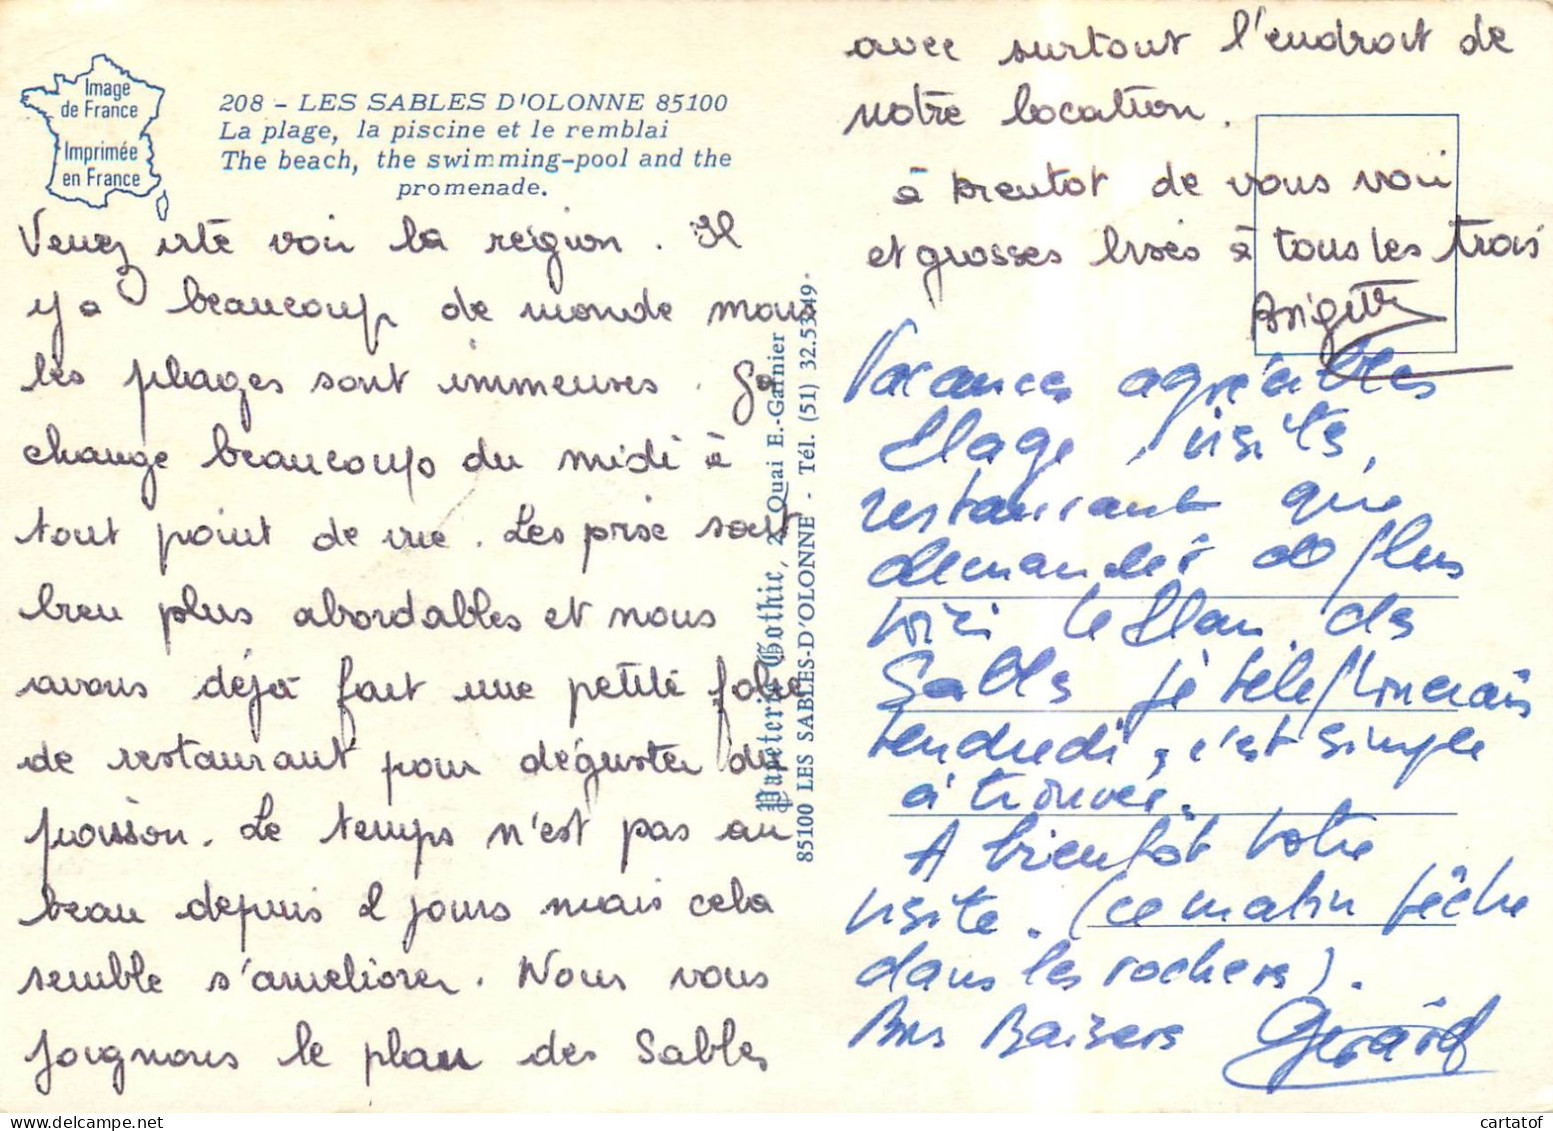 Image
de France
Imprimée
en France
208 - LES SABLES D'OLONNE 85100
La plage, la piscine et le remblai
The beach, the swimming-pool and the
promenade.
Venez vite voir la région. Il
y a beaucoup de monde mais
les plages sont immenses. Ça
change beaucoup du midi à
tout point de vue. Les prix sont
bien plus abordables et nous
avons déjà fait une petite folie
de restaurant pour déguster du
poisson. Le temps n'est pas au
beau depuis 2 jours mais cela
semble s'améliorer. Nous vous
joignons le plan des Sables
Papeterie Gothic, 2, Quai E.-Garnier
85100 LES SABLES-D'OLONNE - Tél. (51) 32.53.49
avec surtout l'endroit de
notre location.
à bientot de vous voir
et grosses bises à tous les trois
Brigitte
Vacances agréables
Plage, visites,
restaurant que
demander de plus
voici le Plan des
Sables je téléphonerais
vendredi, c'est simple
à trouver.
A bientôt votre
visite. (ce matin pêche
dans les rochers).
Bons Baisers Gérard
cartatof